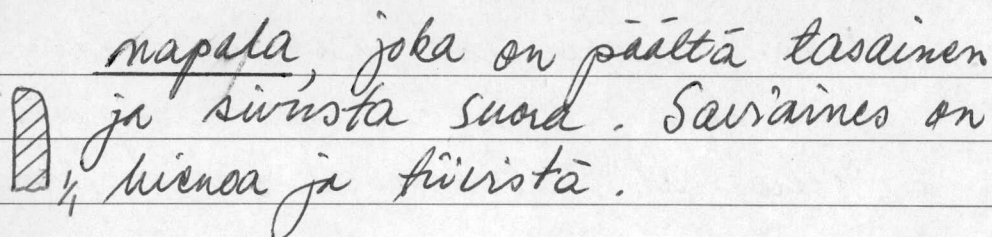 napala, joka on päältä tasainen
ja sivusta suora. Saviaines on
1/1 hienoa ja tiivistä.